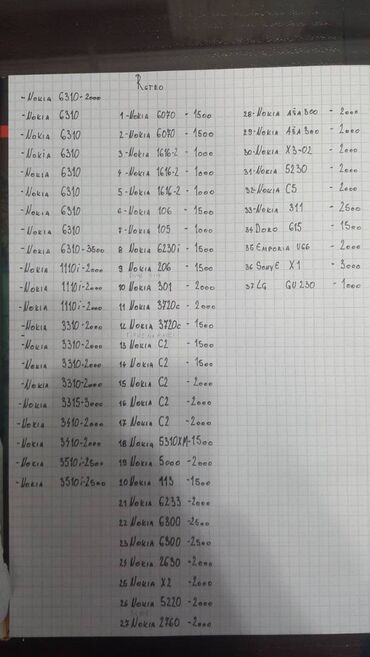 Retro
- Nokia 6310 - 2000
- Nokia 6310
- Nokia 6310
- Nokia 6310
- Nokia 6310
- Nokia 6310
- Nokia 6310
- Nokia 6310
- Nokia 6310 - 3500
- Nokia 1110i - 2000
- Nokia 1110i - 2000
- Nokia 1110i - 2000
- Nokia 3310 - 2000
- Nokia 3310 - 2000
- Nokia 3310 - 2000
- Nokia 3310 - 2000
- Nokia 3315 - 3000
- Nokia 3410 - 2000
- Nokia 3410 - 2000
- Nokia 3510i - 2500
- Nokia 3510i - 2500
1 - Nokia 6070 - 1500
2 - Nokia 6070 - 1500
3 - Nokia 1616-2 - 1000
4 - Nokia 1616-2 - 1000
5 - Nokia 1616-2 - 1000
6 - Nokia 106 - 1500
7 - Nokia 105 - 1000
8 Nokia 6230i - 1500
9 Nokia 206 - 1500
10 Nokia 301 - 2000
11 Nokia 3720c - 2000
12 Nokia 3720c - 1500
13 Nokia C2 - 1500
14 Nokia C2 - 1500
15 Nokia C2 - 2000
16 Nokia C2 - 2000
17 Nokia C2 - 2000
18 Nokia 5310XM - 1500
19 Nokia 5000 - 2000
20 Nokia 113 - 1500
21 Nokia 6233 - 2000
22 Nokia 6300 - 2500
23 Nokia 6300 - 2500
24 Nokia 2630 - 2000
25 Nokia X2 - 2000
26 Nokia 5220 - 2000
27 Nokia 2760 - 2000
28 - Nokia Aša 300 - 2000
29 - Nokia Aša 300 - 2000
30 - Nokia X3-02 - 2000
31 - Nokia 5230 - 2000
32 - Nokia C5 - 2000
33 - Nokia 311 - 2500
34 Doro 615 - 1500
35 Emporia V66 - 2000
36 Sony E X1 - 3000
37 LG GU 230 - 1000